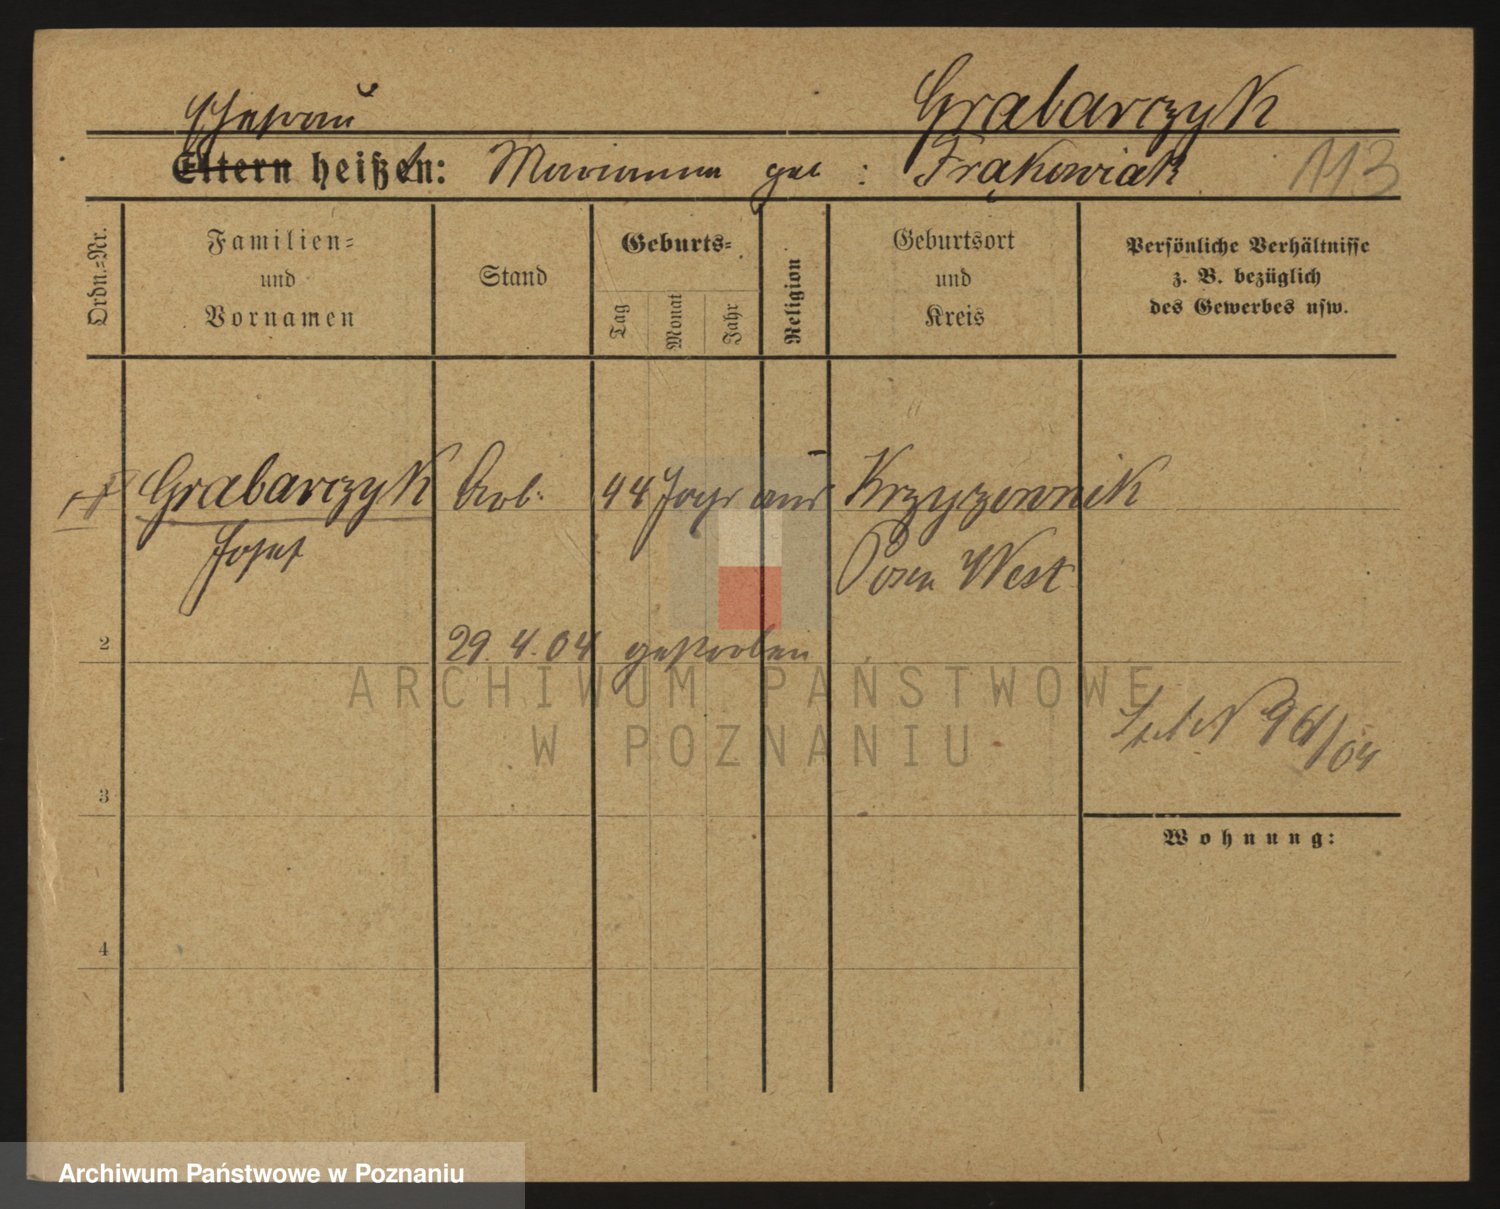 Grabarczyk
Ehefrau
Eltern heißen: Marianna geb: Frąkowiak 113
Ordn.=Nr.
Familien=
und
Vornamen
Stand
Geburts=
Tag
Monat
Jahr
Religion
Geburtsort
und
Kreis
Persönliche Verhältnisse
z. B. bezüglich
des Gewerbes usw.
Grabarczyk Arb. 44 Jahr aus Krzyzownik
Josef Posen West
2
29.4.04 gestorben
ARCHIWUM PAŃSTWOWE
W POZNANIU
3
Wohnung:
4
Archiwum Państwowe w Poznaniu